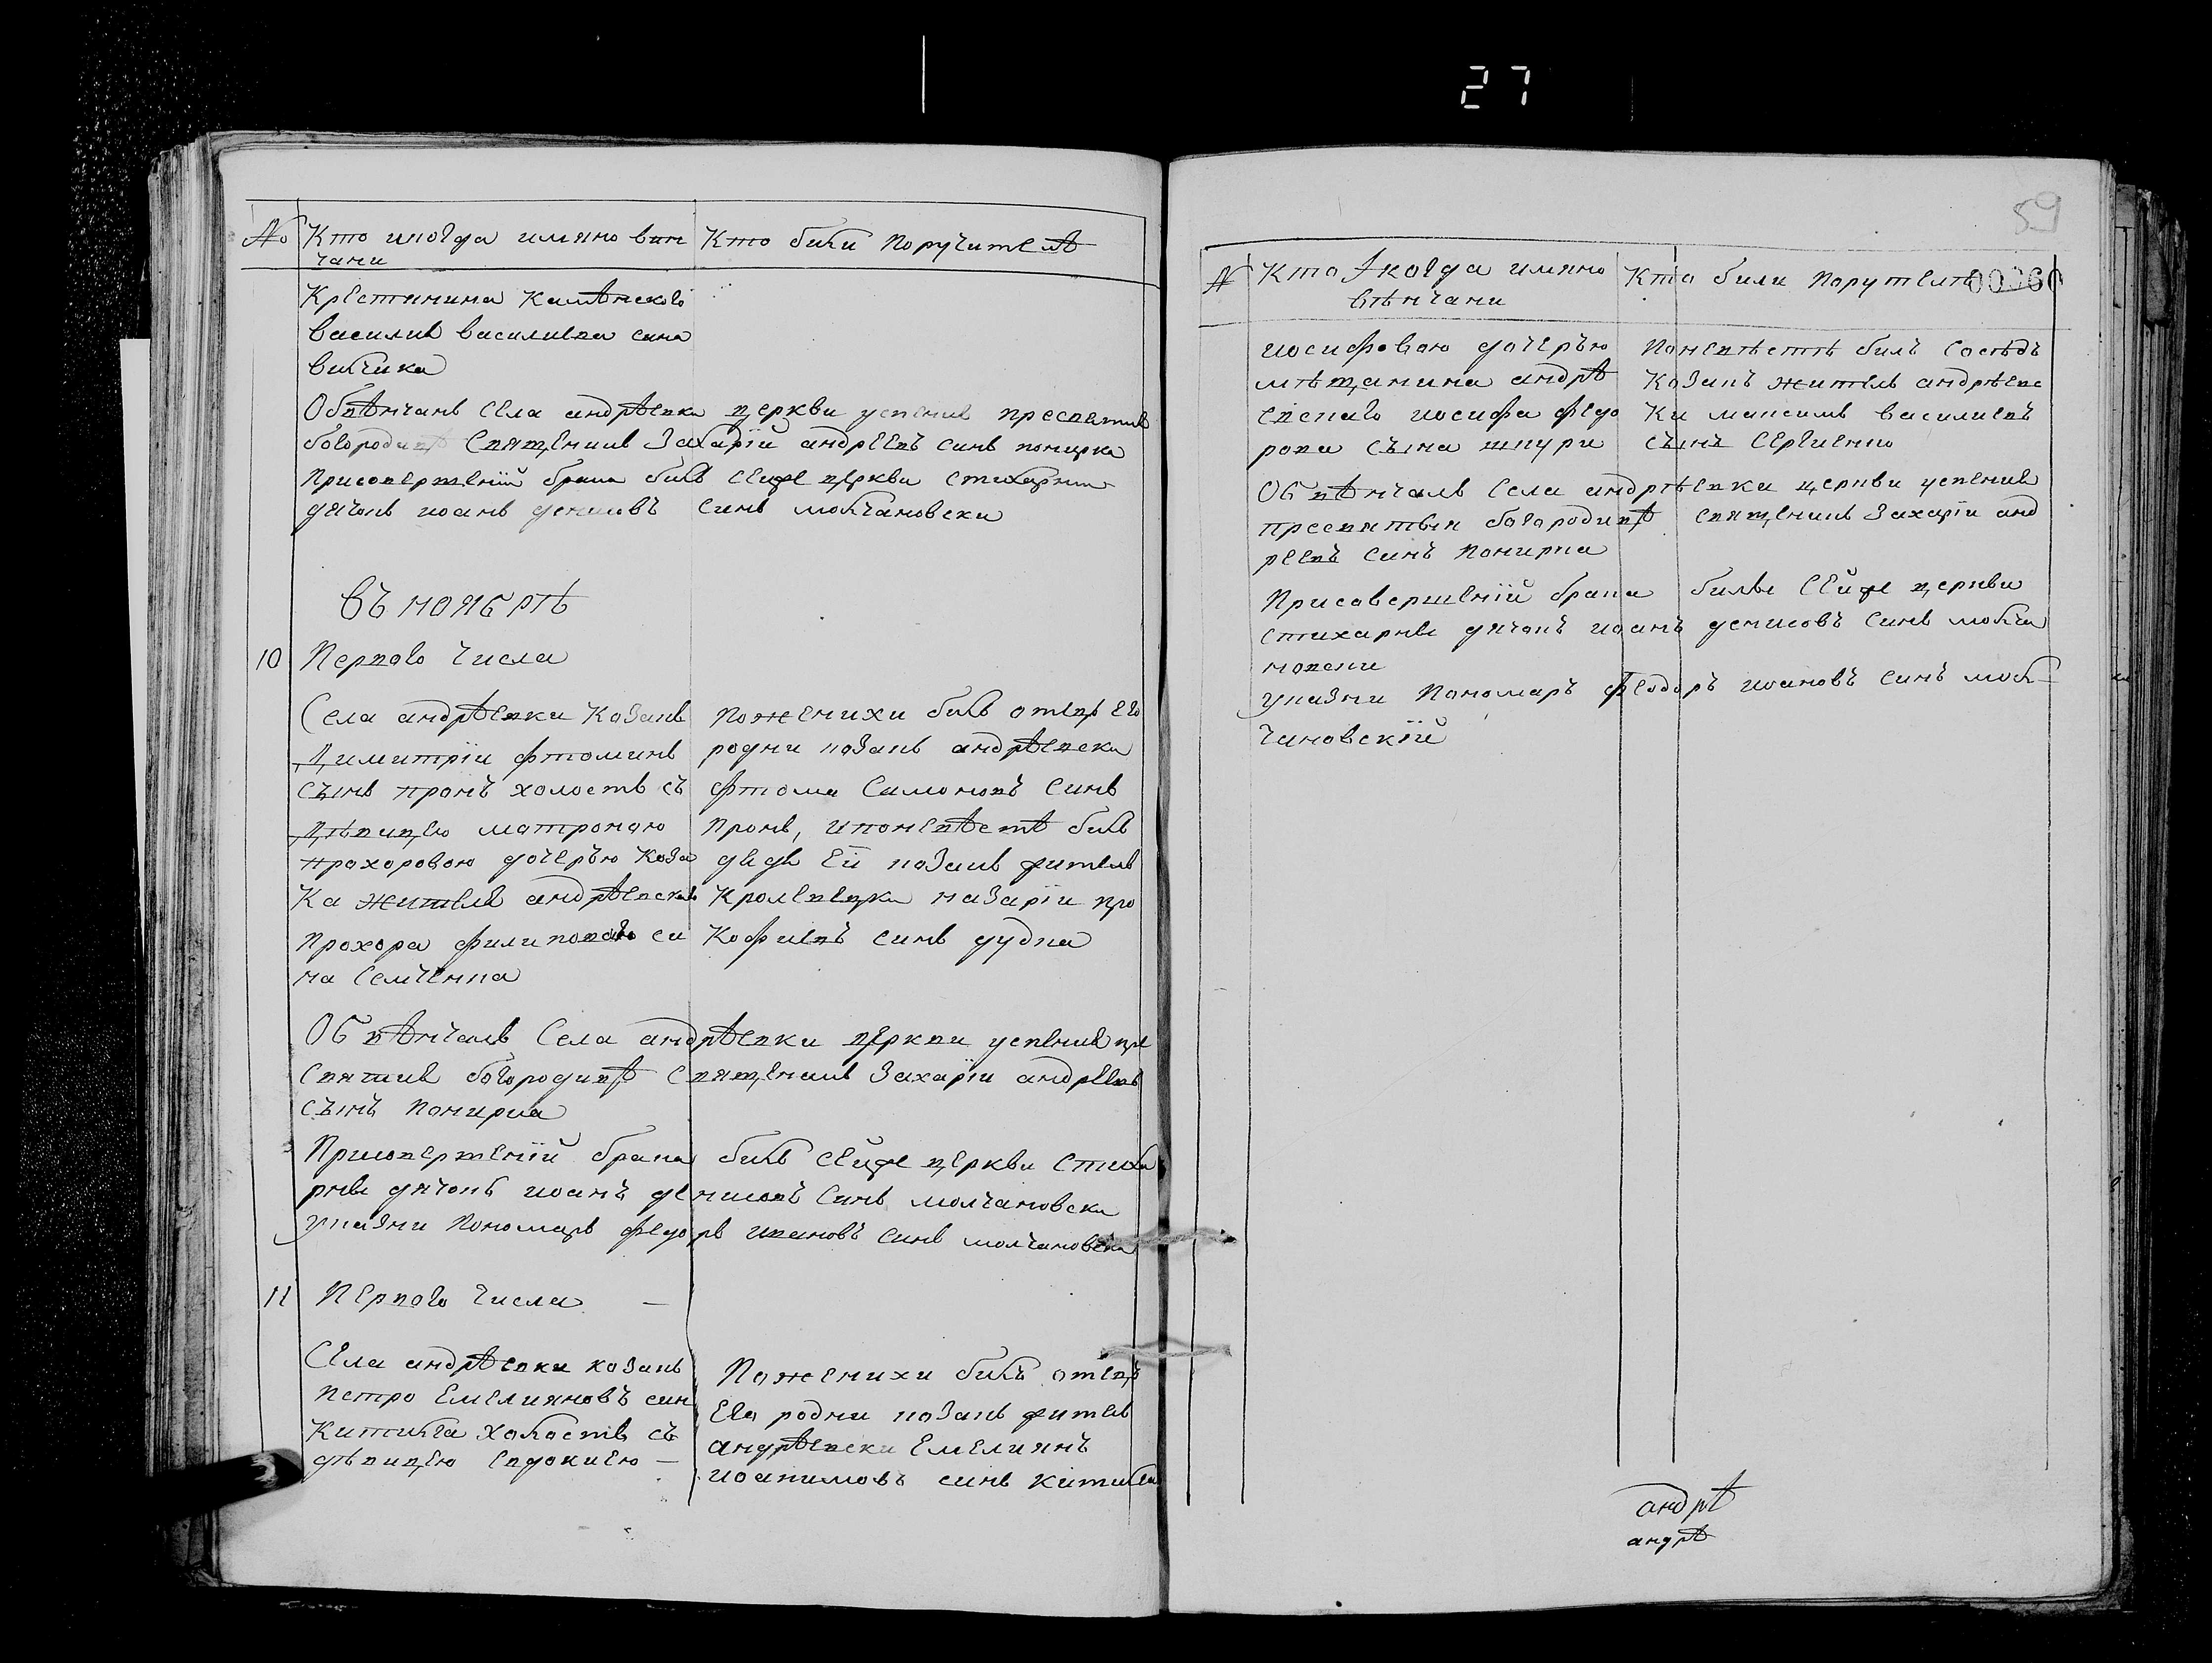 27
№ Кто икогда имяно вин
чани
Кто били поручителѣ
Крестянина Камѣнского
василия василиева сина
вилчика
Обвѣнчавъ Села андрѣевки церкви успения пресвятия
богородицѣ Священикъ Захарїй андреевъ синъ понирка
Присовершенїй брака билъ сейже церкви стихарни
дячокъ иоанъ денисовъ синъ молчановски
Въ ноябрѣ
10 Первого числа
Села андрѣевки козакъ
Димитрїи фтоминъ
сынъ пронъ холостъ съ
Дѣвицею матроною
прохоровою дочерью коза
ка жителя андрѣевскаго
прохора филиповаго си
на семченка
Пожениху билъ отецъ его
родни козакъ андрѣевски
фтома Симоновъ синъ
пронъ, и поневѣстѣ билъ
дядя Ей козакъ жителъ
кролевецки назарїи про
кофиевъ синъ дудка
Обвѣнчалъ Села андрѣевки церкви успения пре
святия богородицѣ священикъ Захарїи андреевъ
сынъ понирка
Присовершенїи брака билъ сейже церкви стиха
рни дячокъ иоанъ денисовъ синъ молчановски
указни пономаръ федоръ ивановъ синъ молчановски
11 Первого числа —
Села андрѣевки козакъ
петро Емелияновъ син
Китилга холостъ съ
дѣвицею евдокиею —
Пожениху билъ отецъ
Его родни козакъ жителъ
андрѣевски Емелиянъ
иоакимовъ синъ китилга
59
00060
№ Кто и когда имяно
вѣнчани
Кто били порутелѣ
иосифовою дочерью
мѣщанина андрѣ
евскаго иосифа федо
рова сына шпури
Поневѣстѣ билъ сосѣдъ
козакъ жителъ андрѣевс
ки максимъ василиевъ
сынъ сергиенко
Обвѣнчалъ Села андрѣевки церкви успения
пресвятыя богородицѣ священикъ Захарїи анд
реевъ синъ понирка
Присовершенїй брака билъ сейже церкви
стихарни дячокъ иоанъ денисовъ синъ молча
новски
указни пономаръ феодоръ иоановъ синъ мол-
чановскїй
андрѣ
андрѣ